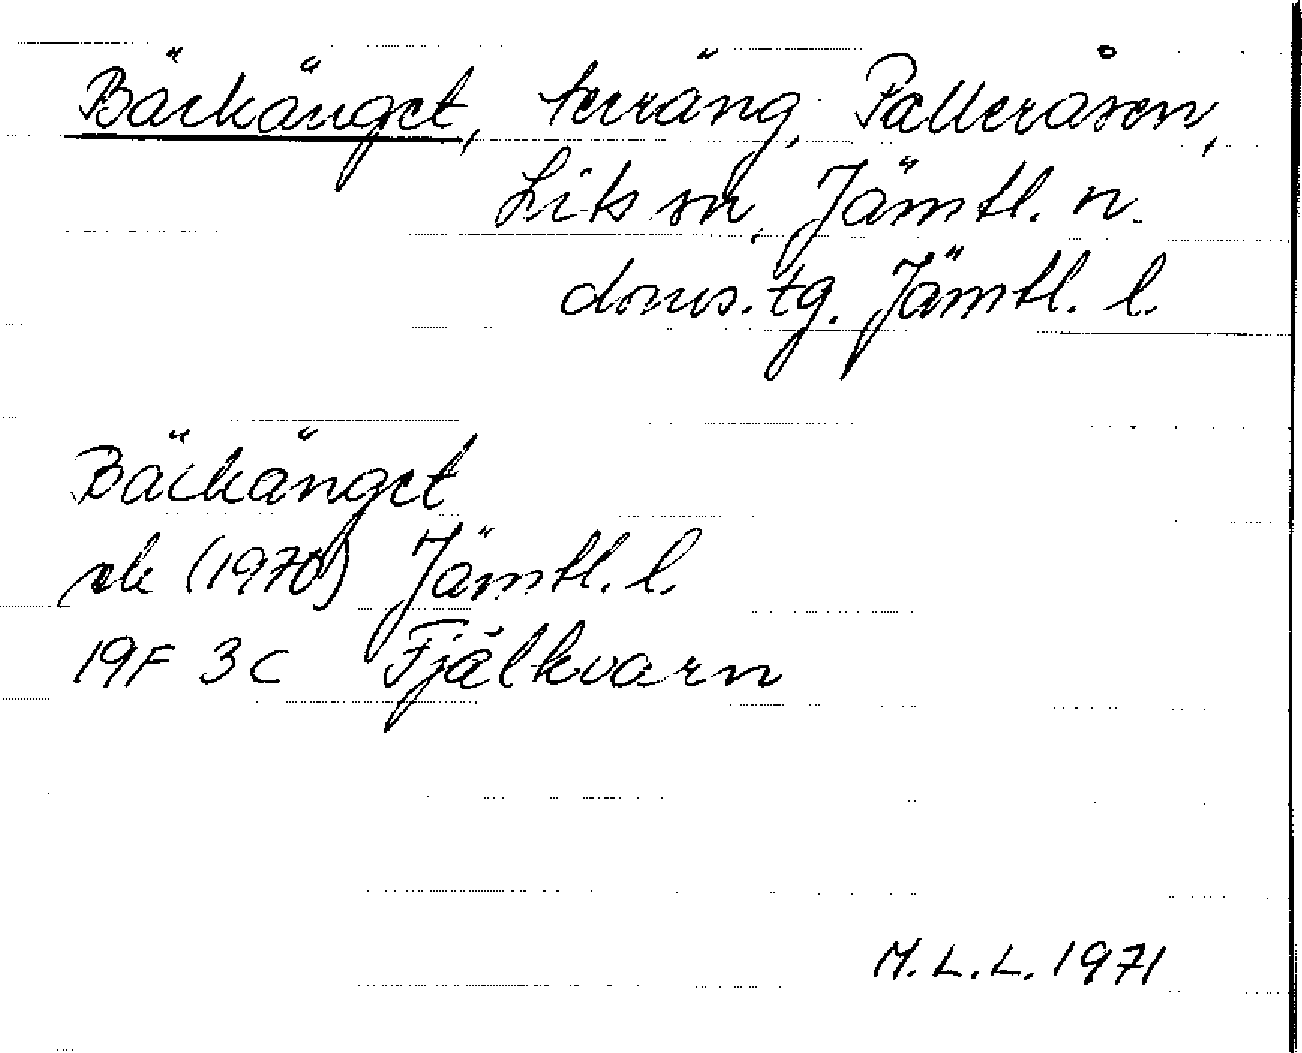 Bäckänget, terräng, Palleråsen,
Lits sn, Jämtl. n.
doms. tg. Jämtl. l.
Bäckänget
ek (1970) Jämtl. l.
19F 3c Fjälkvarn
M.L.L. 1971